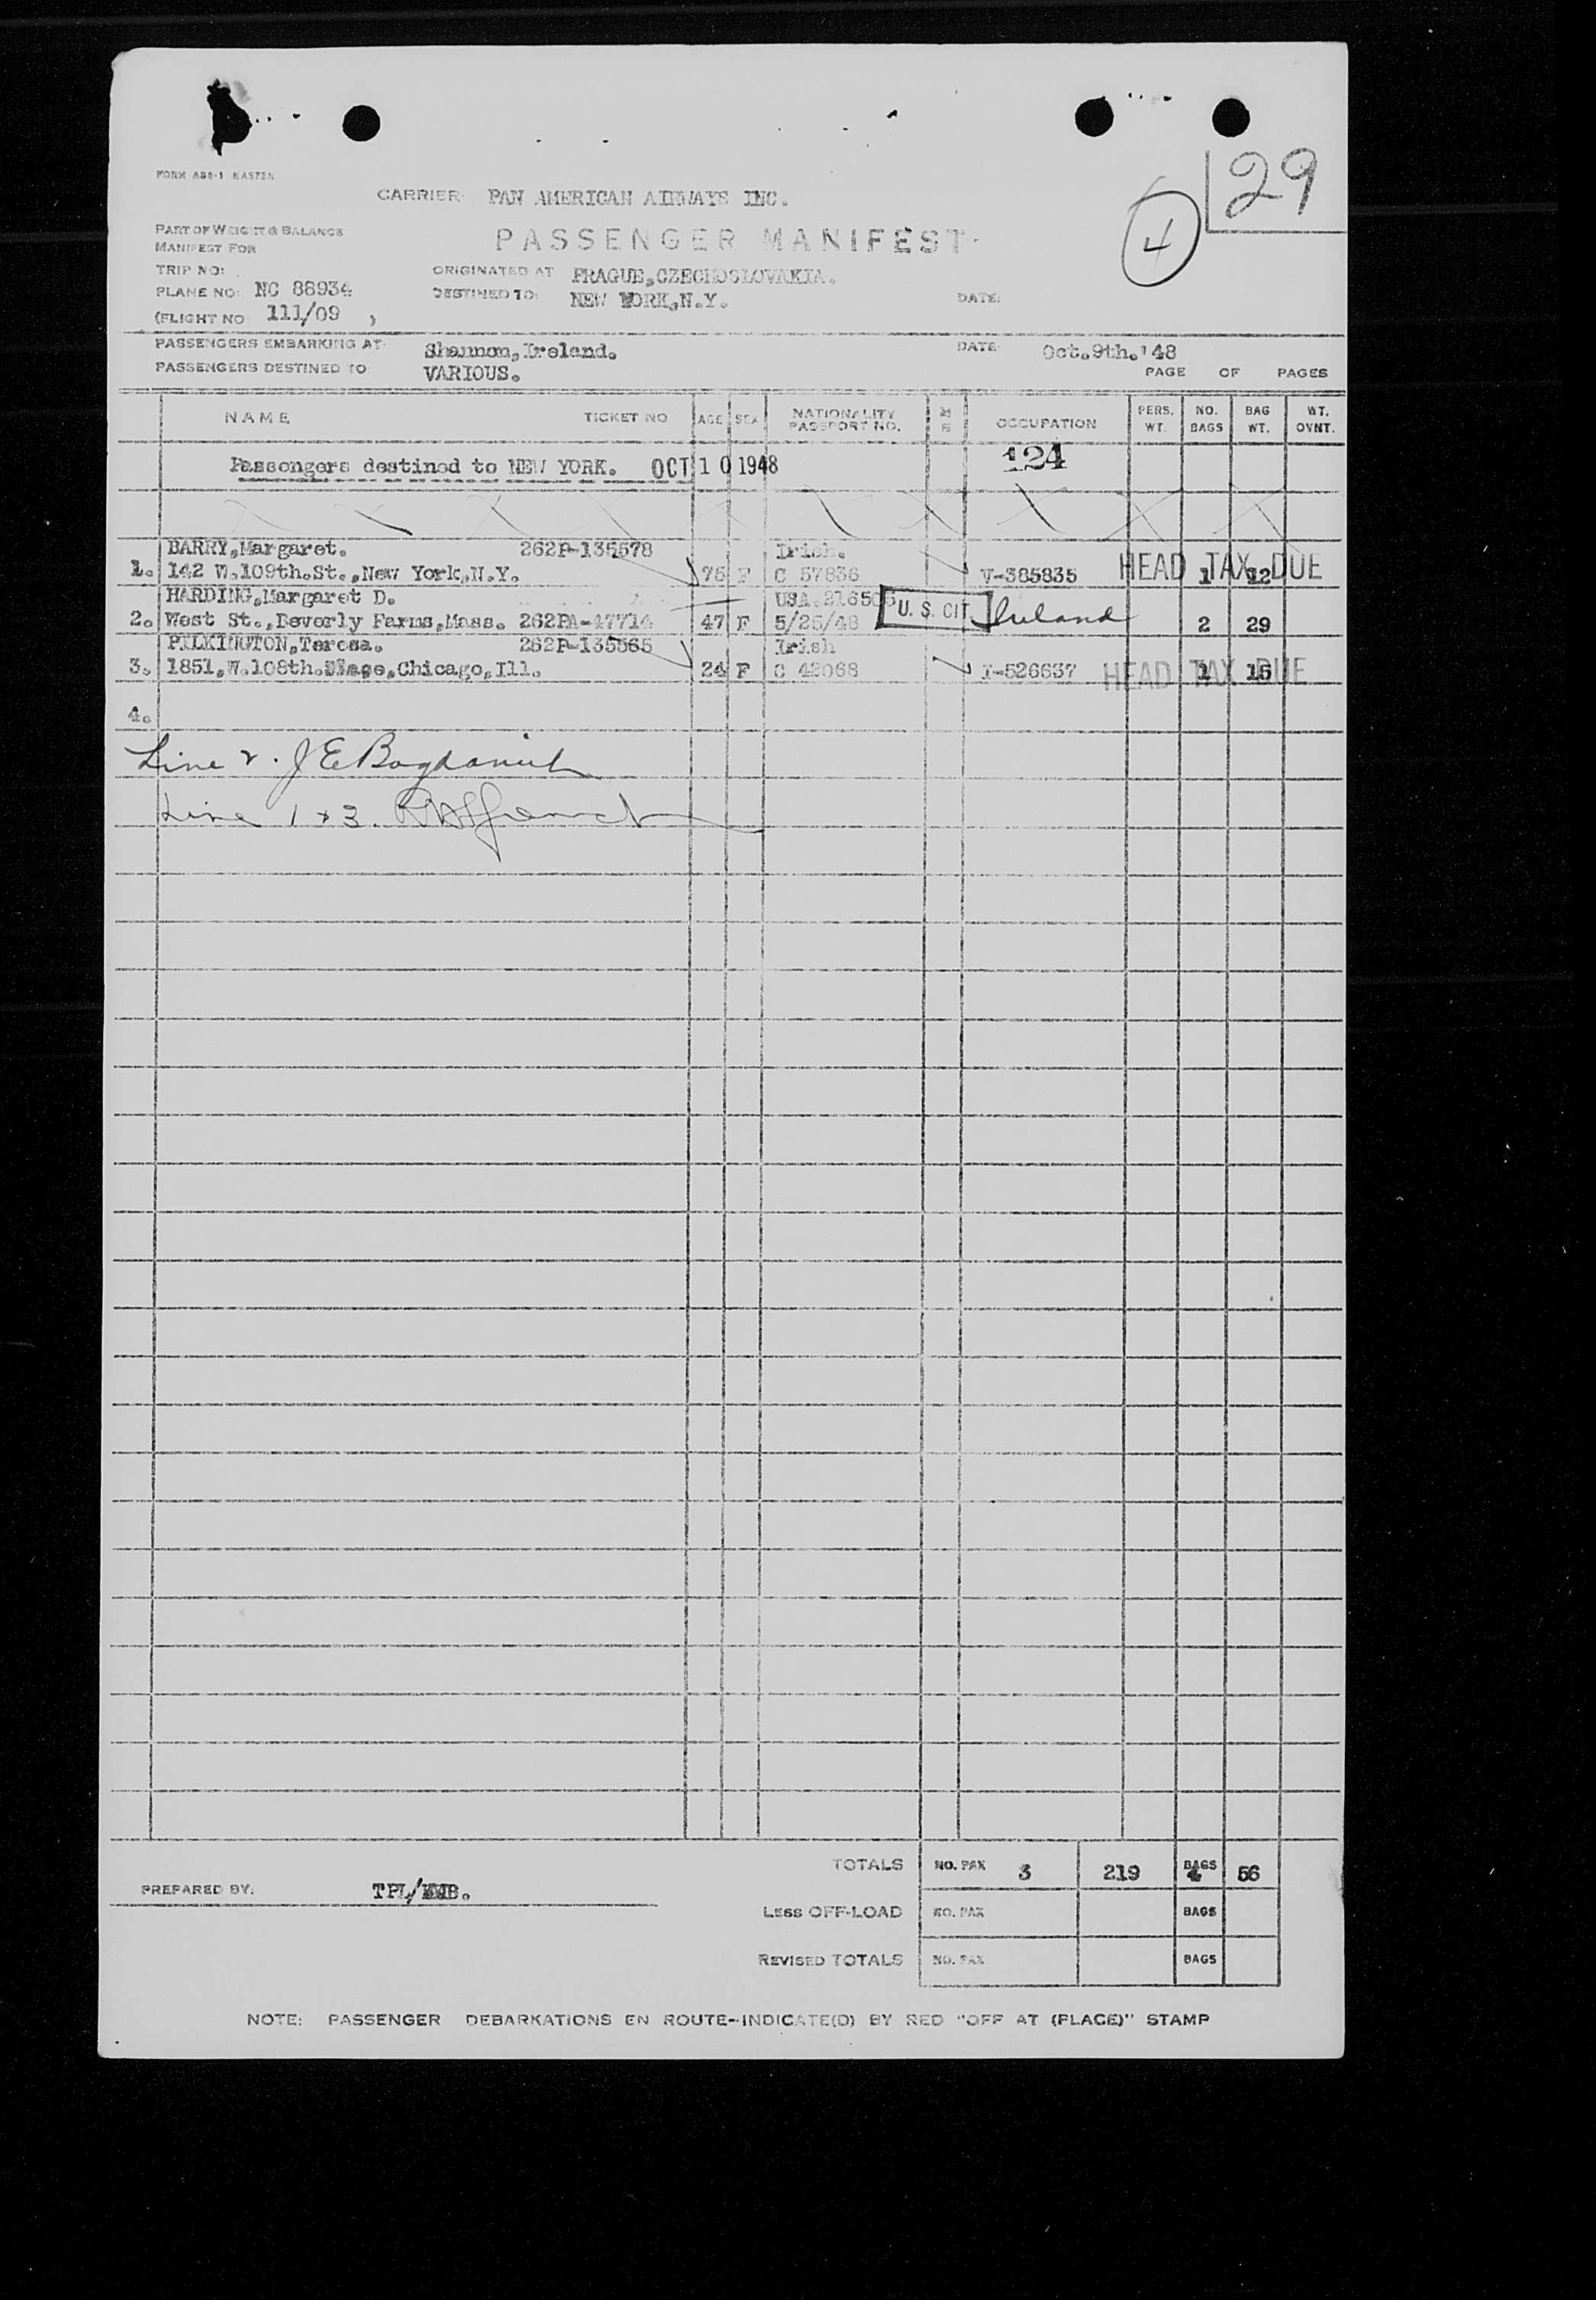 29
4
CARRIER PAN AMERICAN AIRWAYS INC.
PART OF WEIGHT & BALANCE
MANIFEST FOR
PASSENGER MANIFEST
TRIP NO:
ORIGINATED AT PRAGUE,CZECHOSLOVAKIA.
PLANE NO: NC 88934
DESTINED TO: NEW YORK,N.Y.
DATE:
(FLIGHT NO 111/09 )
PASSENGERS EMBARKING AT Shannon,Ireland.
DATE Oct.9th.'48
PASSENGERS DESTINED TO VARIOUS.
PAGE OF PAGES
NAME TICKET NO AGE SEX NATIONALITY PASSPORT NO. OCCUPATION PERS. WT. NO. BAGS BAG WT. WT. OVNT.
Passengers destined to NEW YORK. OCT 10 1948 124
BARRY,Margaret. 262P-135578 Irish.
1. 142 W.109th.St.,New York,N.Y. 75 F C 57836 V-385835 HEAD TAX DUE 1 12
HARDING,Margaret D. USA
2. West St.,Beverly Farms,Mass. 262PA-47714 47 F 5/25/48 U. S. CIT Ireland 2 29
PILKINGTON,Teresa. 262P-135565 Irish
3. 1851,W.108th. Chicago,Ill. 24 F C 42068 I-526637 HEAD TAX DUE 1 15
4.
Line 2. J E Bogdanich
Line 1 + 3.
TOTALS NO. PAX 3 219 BAGS 4 56
PREPARED BY: TPL/
LESS OFF-LOAD NO. PAX BAGS
REVISED TOTALS NO. PAX BAGS
NOTE: PASSENGER DEBARKATIONS EN ROUTE--INDICATE(D) BY RED "OFF AT (PLACE)" STAMP